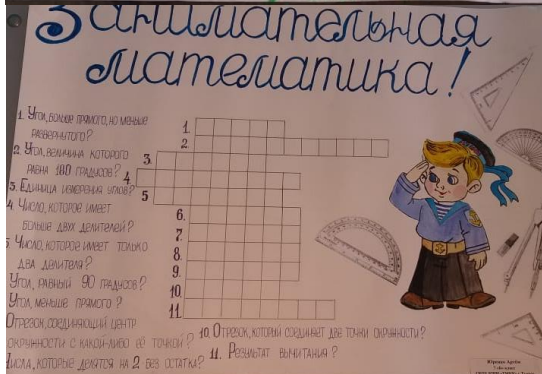 Занимательная
математика!
1. Угол, больше прямого, но меньше
развернутого?
2. Угол, величина которого
равна 180 градусов?
3. Единица измерения углов?
4 Число, которое имеет
больше двух делителей?
Число, которое имеет только
два делителя?
Угол, равный 90 градусов?
Угол, меньше прямого?
Отрезок, соединяющий центр
окружности с какой-либо её точкой?
Числа, которые делятся на 2 без остатка?
10. Отрезок, который соединяет две точки окружности?
11. Результат вычитания?
1.
2.
3.
4
5
6.
7.
8.
9.
10.
11.